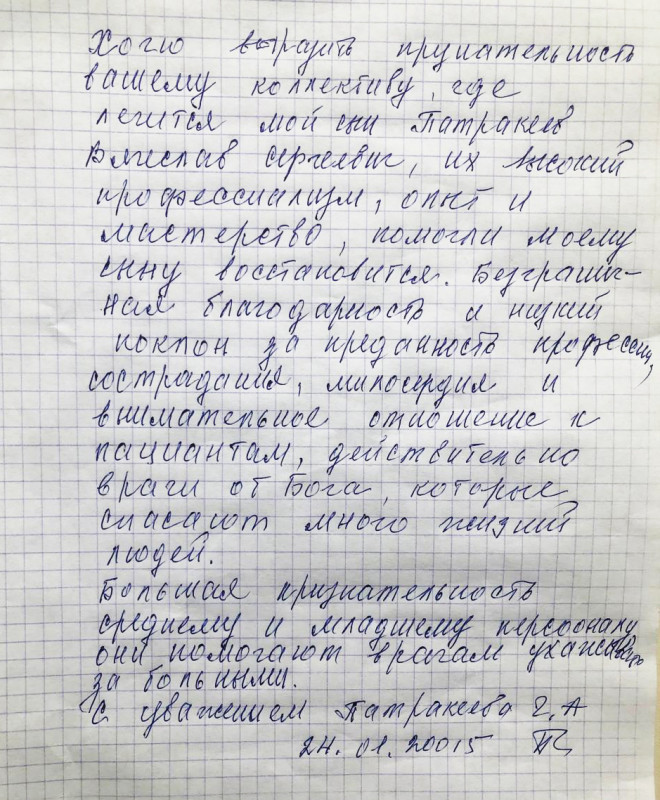 Хочю выразить прузнательность
вашему коллективу, где
лечится мой сын Патракеев
Вячислав Сергеевич, их высокий
профессиализм, опыт и
мастерство, помогли моему
сыну восстановится. Безгранич-
ная благодарность и низкий
поклон за преданность профессии,
сострадания, милосердия и
внимательное отношение к
пациантам, действительно
врачи от Бога, которые
спасают много жизний
людей.
Большая признательность
среднему и младшему персооналу
они помогают врачам ухаживать
за больными.
С уважением Патракеева Г. А
24. 01. 20015